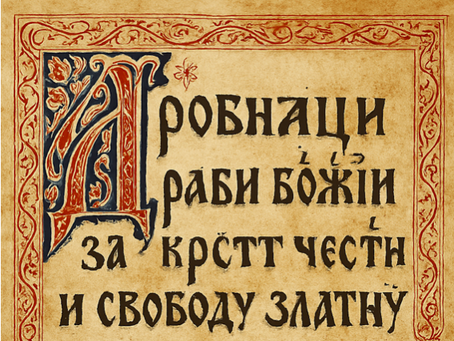 Дробнаци
раби божіи
за крстт честн
и свободу златну